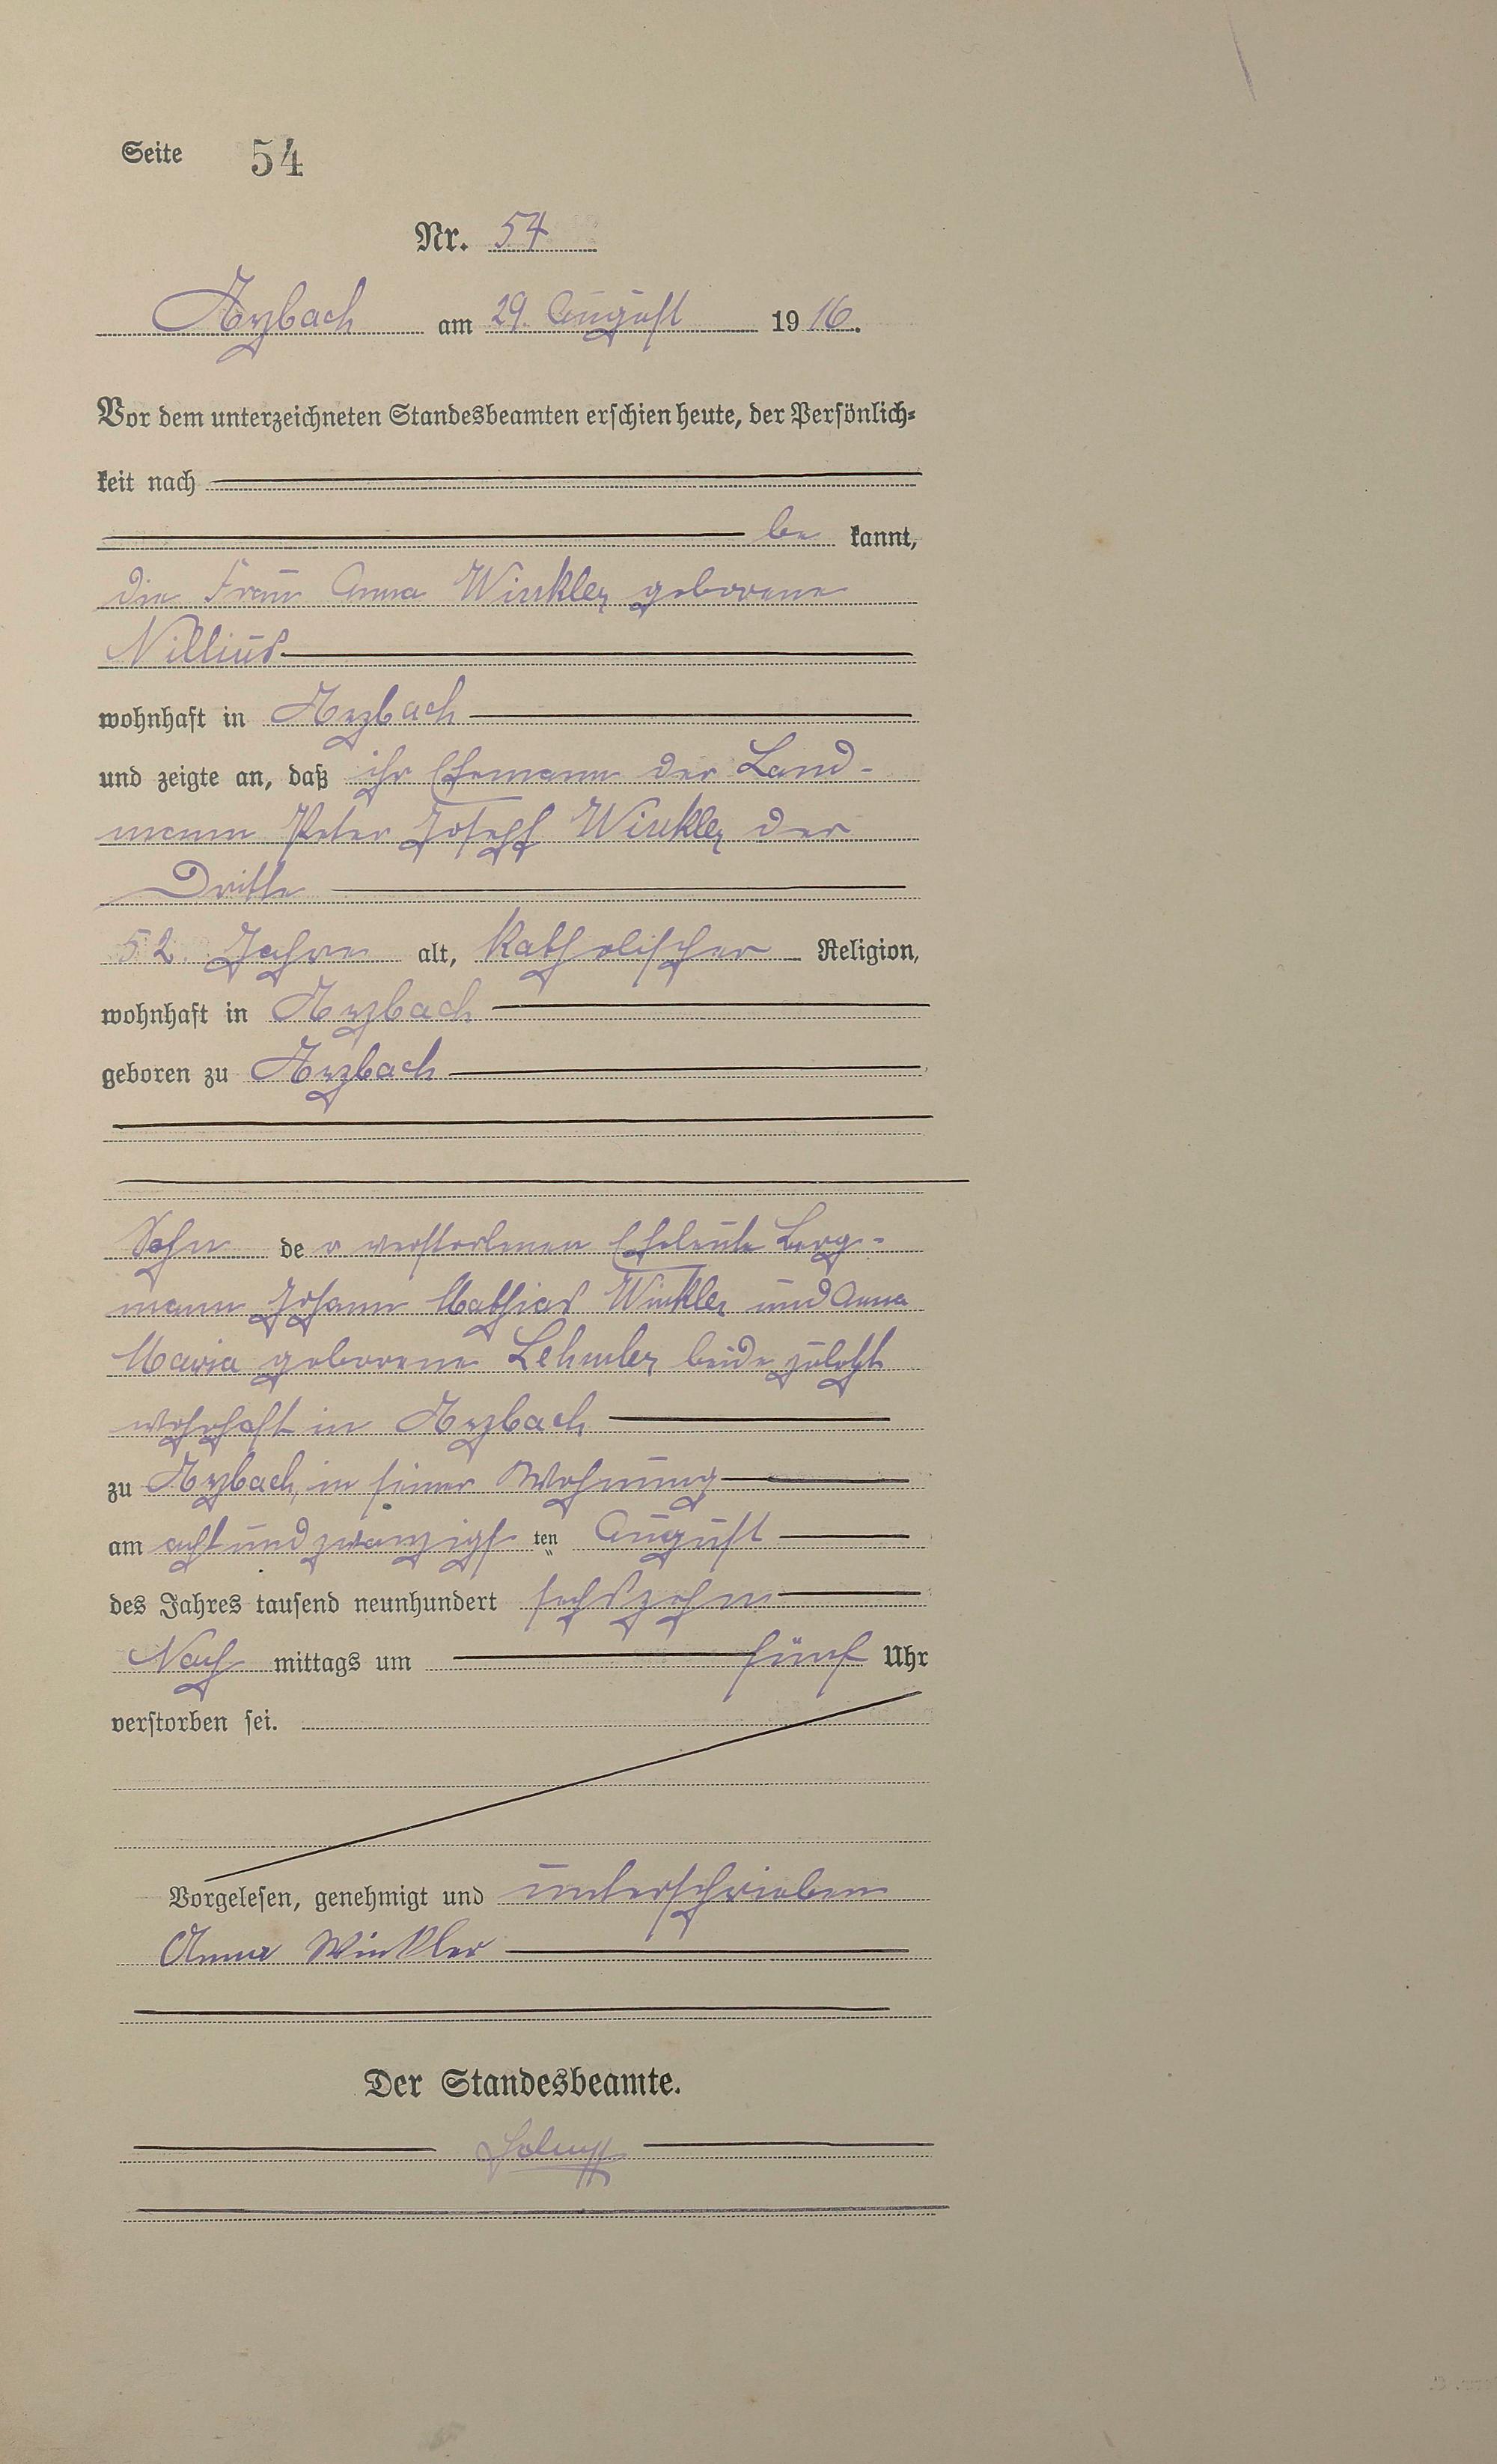 Seite 54
Nr. 54
Arzbach am 29. August 1916.
Vor dem unterzeichneten Standesbeamten erschien heute, der Persönlich-
keit nach
be kannt,
die Frau Anna Winkler geborene
Nillius
wohnhaft in Arzbach
und zeigte an, daß ihr Ehemann der Land-
mann Peter Joseph Winkler der
Dritte
52 Jahre alt, katholischer Religion,
wohnhaft in Arzbach
geboren zu Arzbach
Sohn de r verstorbenen Eheleute Berg-
mann Johann Mathias Winkler und Anna
Maria geborene Lehmler beide zuletzt
wohnhaft in Arzbach
zu Arzbach, in seiner Wohnung
am acht und zwanzigs ten August
des Jahres tausend neunhundert sechszehn
Nach mittags um fünf Uhr
verstorben sei.
Vorgelesen, genehmigt und unterschrieben
Anna Winkler
Der Standesbeamte.